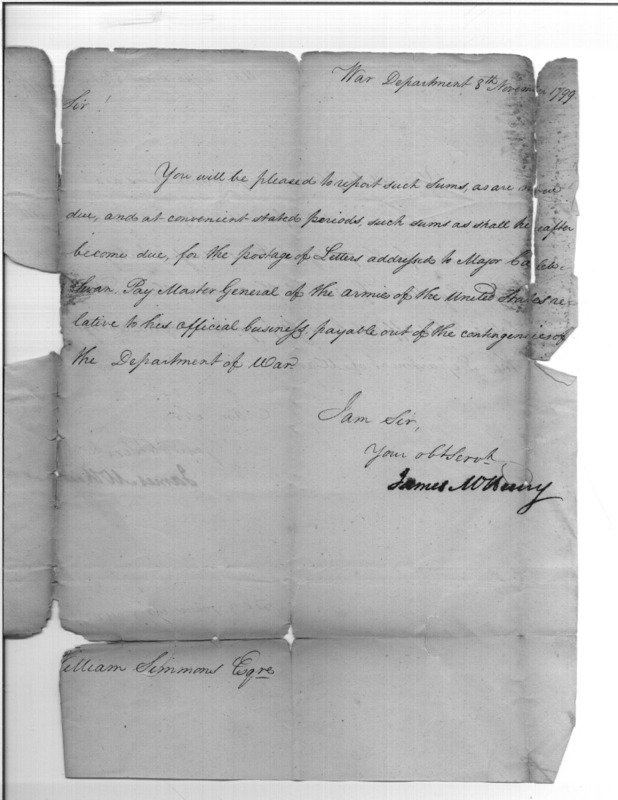 War Department 8th November 1799
Sir!
You will be pleased to report such Sums, as are now
due, and at convenient stated periods, such sums as shall hereafter
become due, for the postage of Letters addressed to Major Caleb
Swan, Pay Master General of the armies of the United States re-
lative to his official business payable out of the contingencies of
the Department of War
I am Sir,
Your obt Servt
James McHenry
William Simmons Esqre